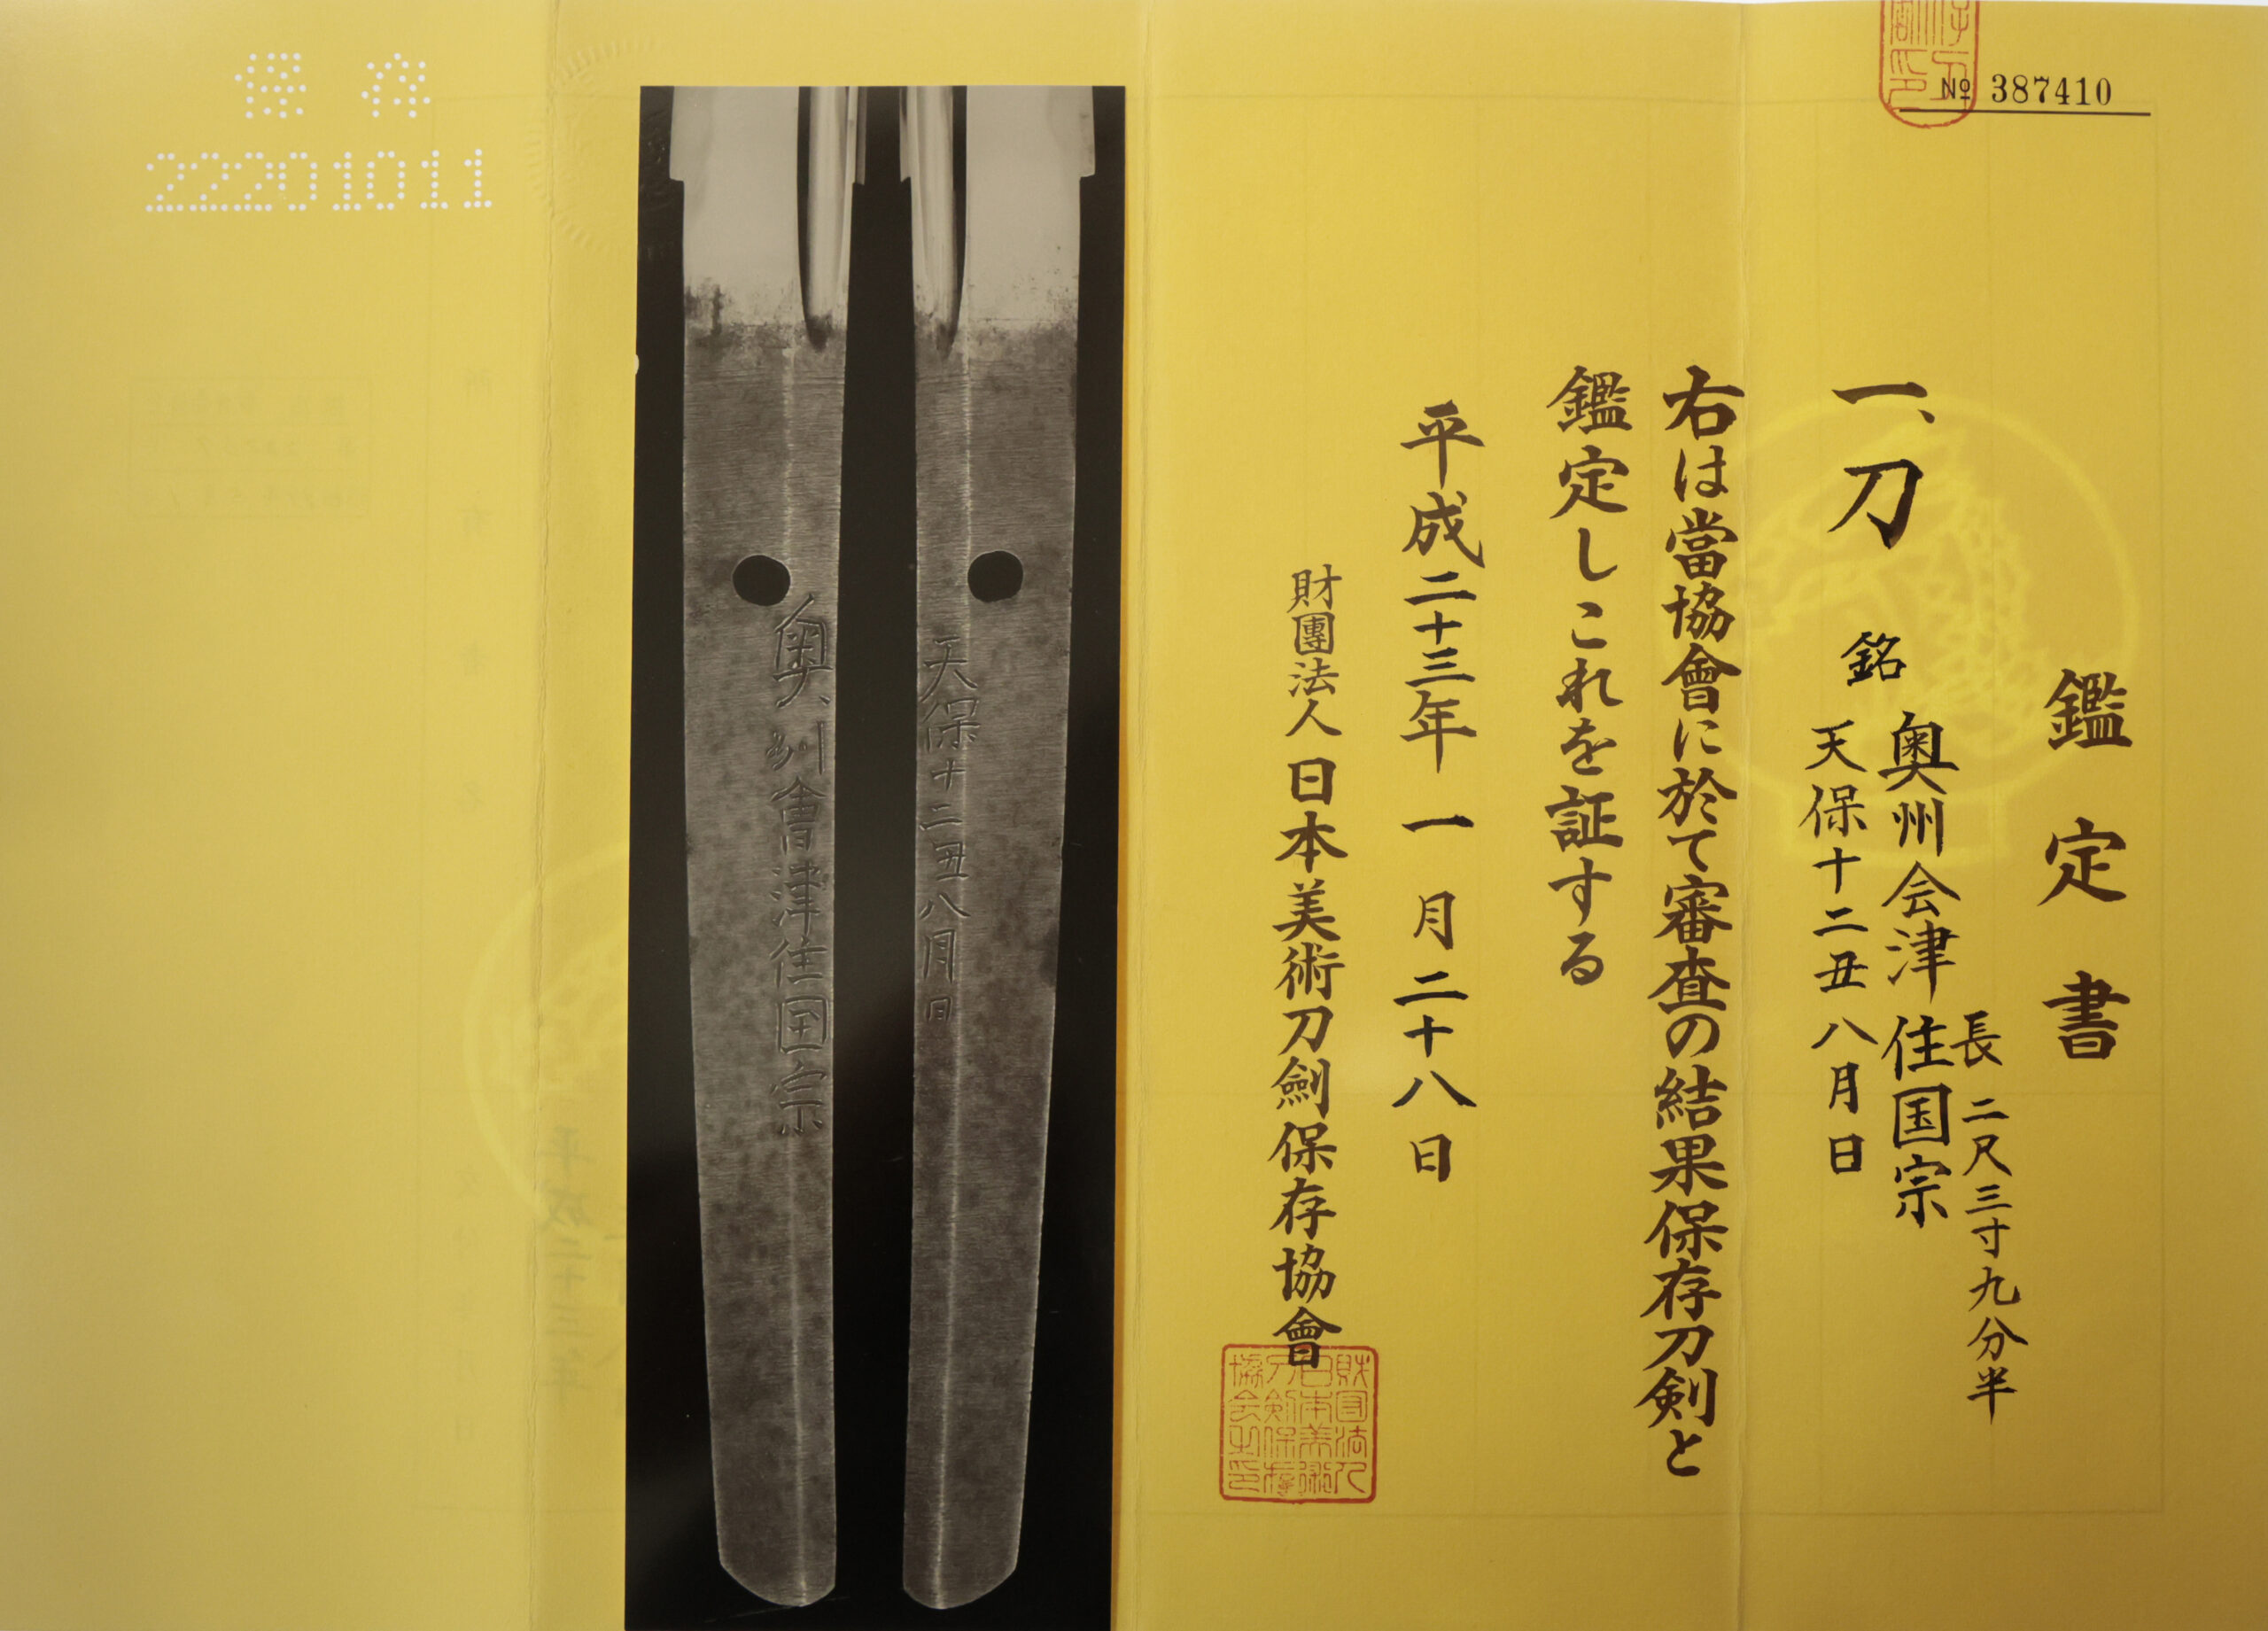 № 387410
鑑定書
一、刀
長二尺三寸九分半
銘
奥州会津住国宗
天保十二丑八月日
右は當協會に於て審査の結果保存刀剣と
鑑定しこれを証する
平成二十三年一月二十八日
財團法人日本美術刀劍保存協會
財団法人
日本美術
刀剣保存
協会之印
天保十二丑八月日
奥州會津住国宗
保存
22201011